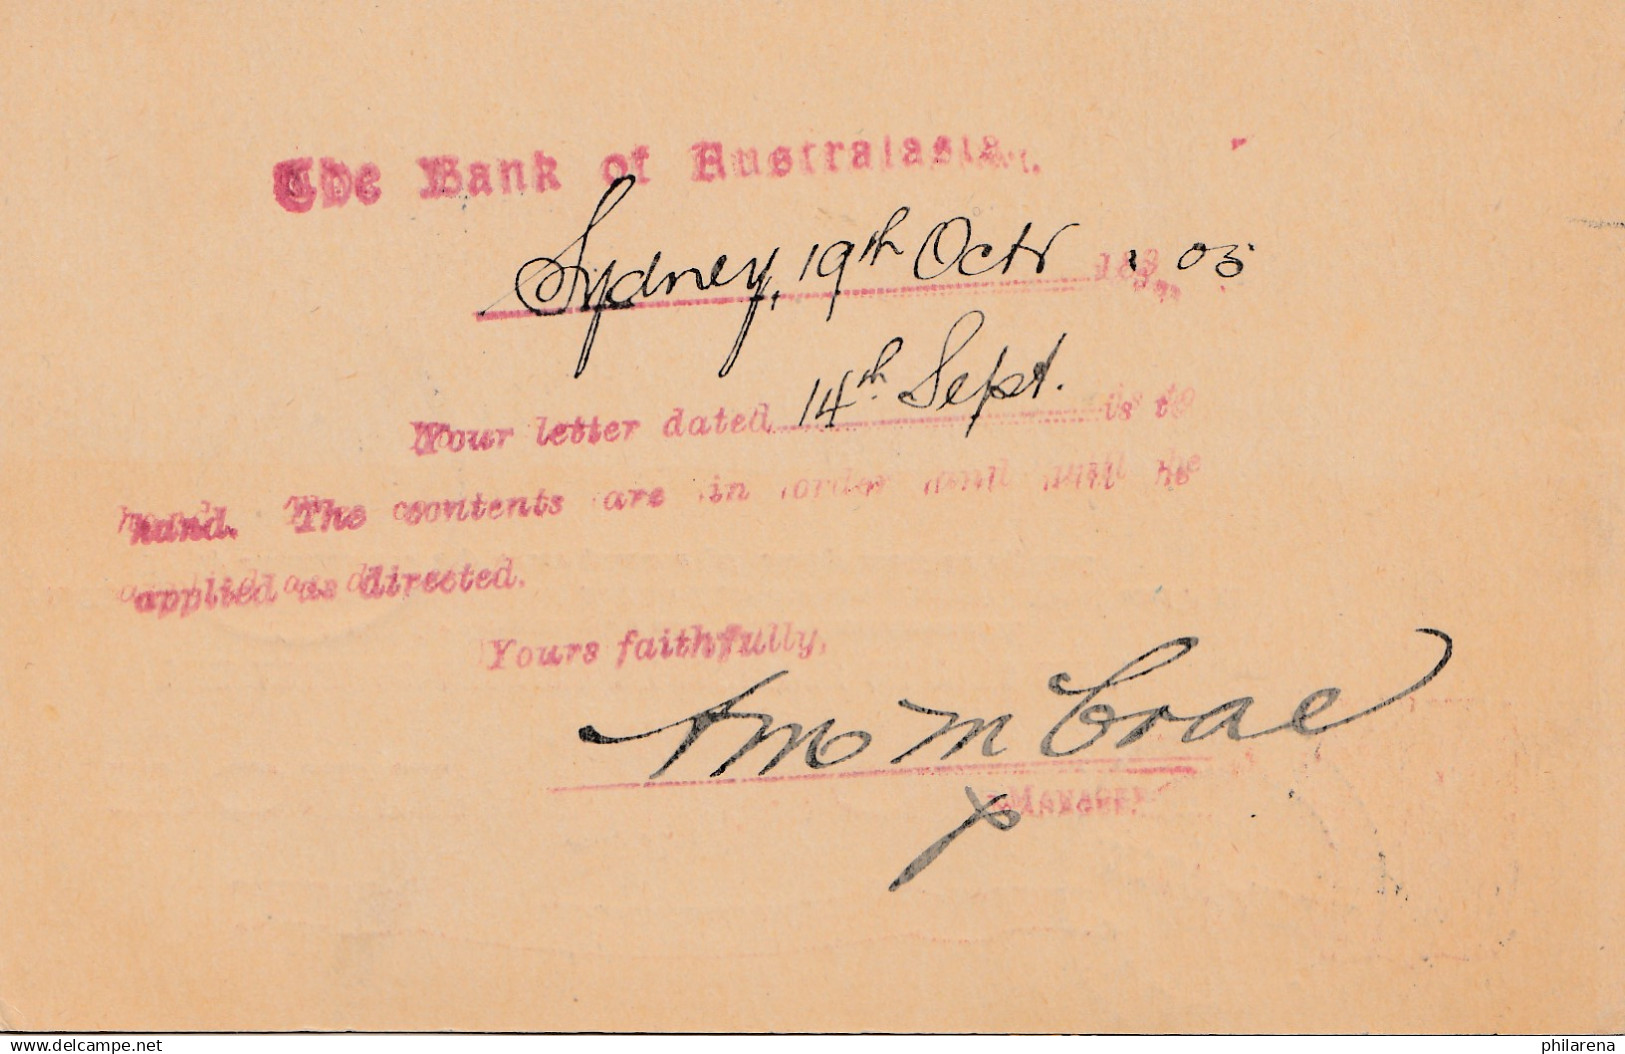 The Bank of Australasia.
Sydney, 19th Octr 05
Your letter dated 14th Sept. is to
hand. The contents are in order and will be
applied as directed.
Yours faithfully,
McCrae
MANAGER
delcampe.net
philarena